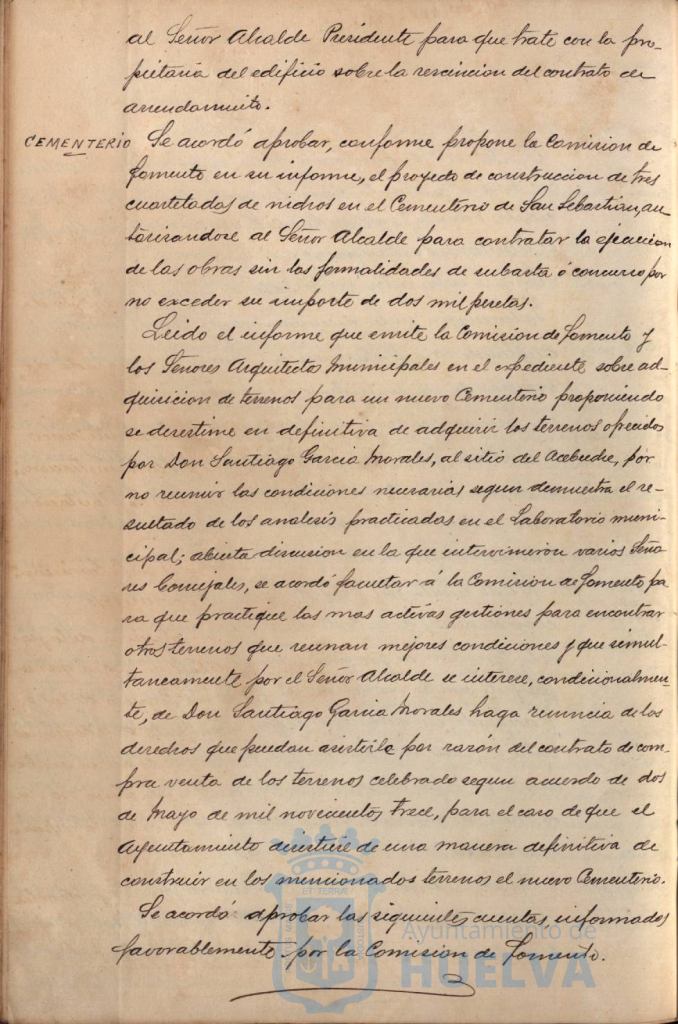 al Señor Alcalde Presidente para que trate con la pro-
pietaria del edificio sobre la rescincion del contrato de
arrendamiento.
CEMENTERIO Se acordó aprobar, conforme propone la Comision de
Fomento en su informe, el proyecto de construccion de tres
cuarteladas de nichos en el Cementerio de San Sebastián, au-
torizandose al Señor Alcalde para contratar la ejecucion
de las obras sin las formalidades de subasta ó concurso por
no exceder su importe de dos mil pesetas.
Leido el informe que emite la Comision de Fomento y
los Señores Arquitectos Municipales en el expediente sobre ad-
quisicion de terrenos para un nuevo Cementerio proponiendo
se desestime en definitiva de adquirir los terrenos ofrecidos
por Don Santiago Garcia Morales, al sitio del Acebuche, por
no reunir las condiciones necesarias segun demuestra el re-
sultado de los analisis practicados en el Laboratorio muni-
cipal; abierta discusion en la que intervinieron varios Seño-
res Concejales, se acordó facultar á la Comision de Fomento pa
ra que practique las mas activas gestiones para encontrar
otros terrenos que reunan mejores condiciones y que simul-
taneamente por el Señor Alcalde se interese, condicionalmen-
te, de Don Santiago Garcia Morales haga renuncia de los
derechos que puedan asistirle por razón del contrato de com-
pra venta de los terrenos celebrado segun acuerdo de dos
de Mayo de mil novecientos trece, para el caso de que el
Ayuntamiento desistiese de una manera definitiva de
construir en los mencionados terrenos el nuevo Cementerio.
Se acordó aprobar las siguientes cuentas informadas
favorablemente por la Comision de Fomento.
Ayuntamiento de
HUELVA